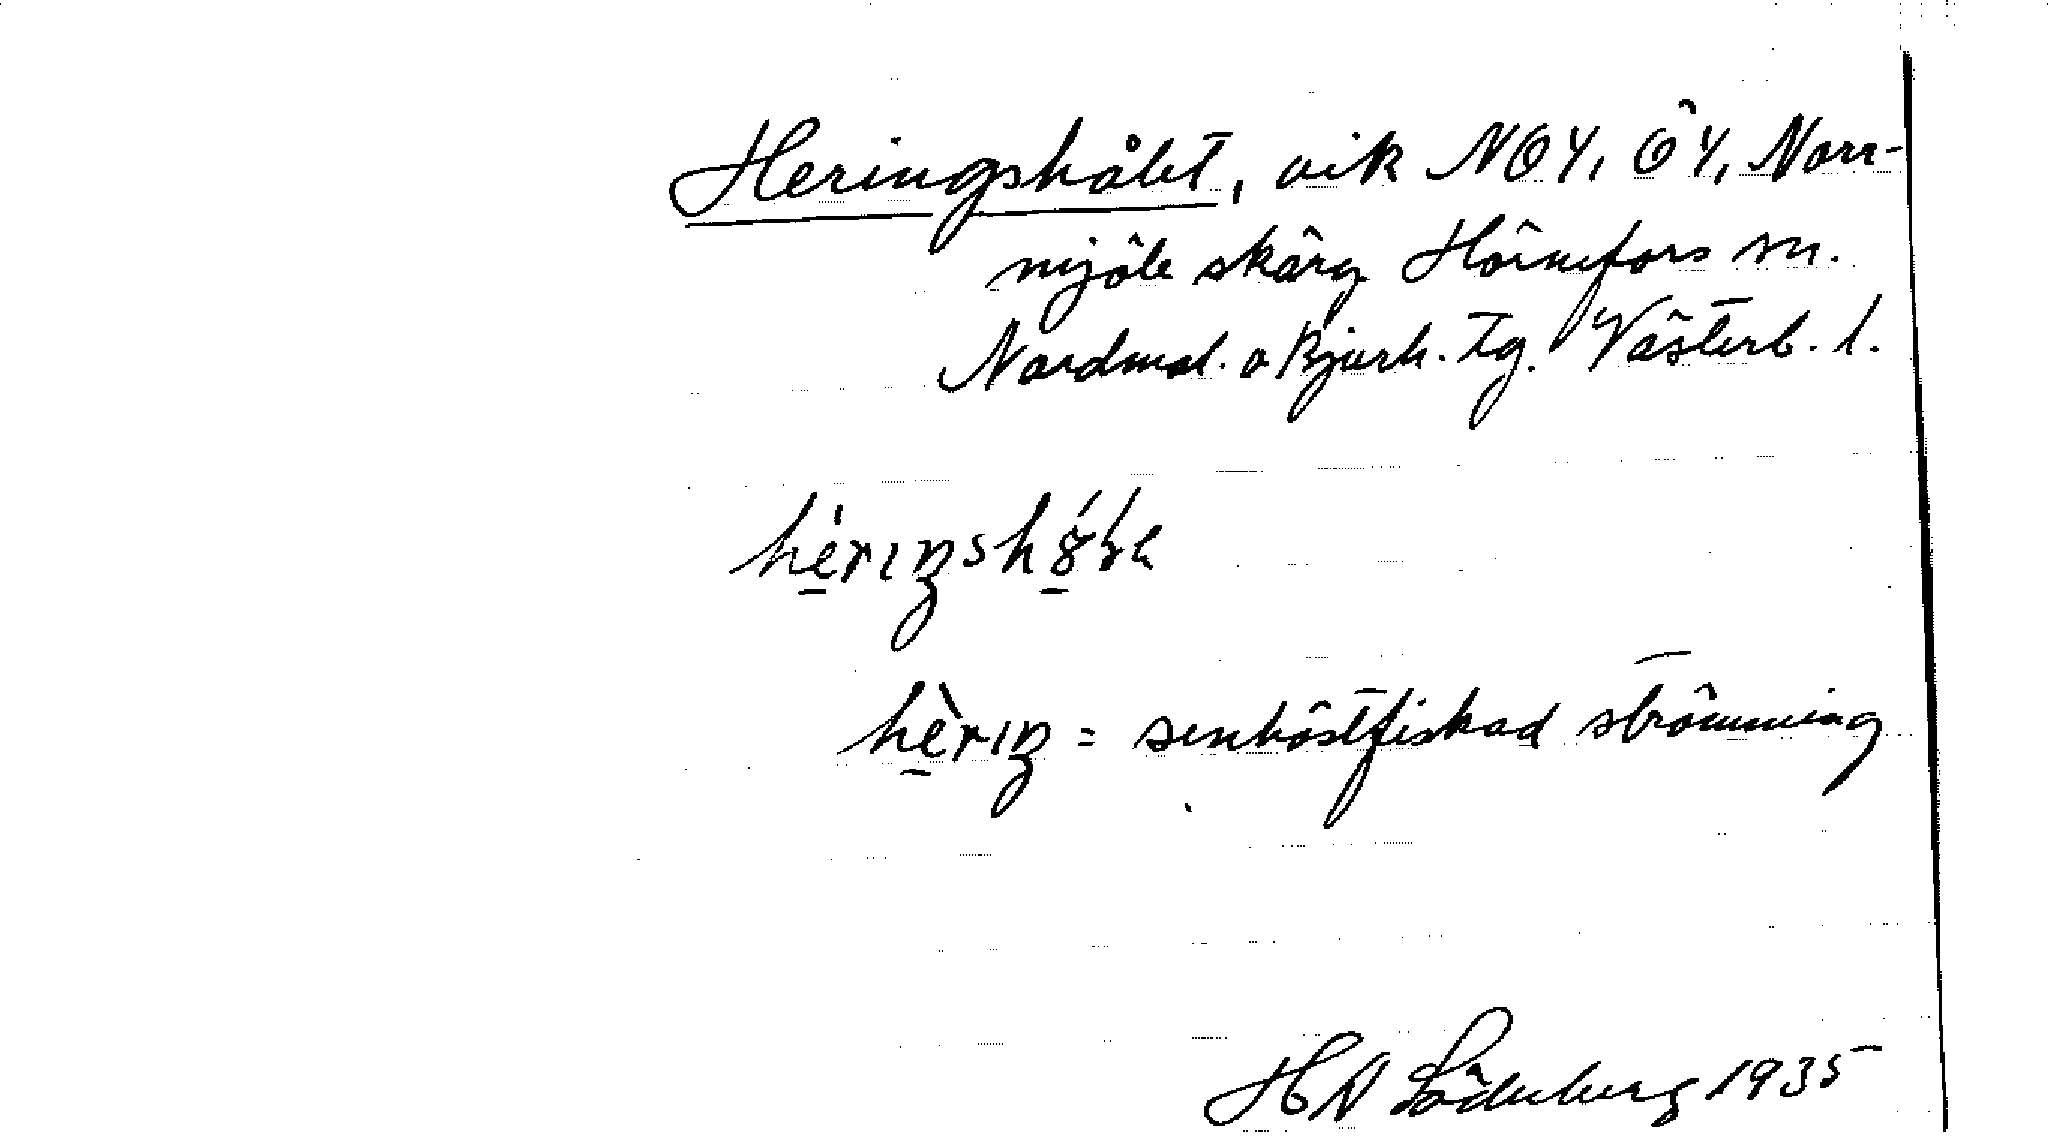 Heringshålet, vik NO4, Ö4, Norr-
mjöle skärg Hörnefors sn.
Nordmal. o Bjurh. tg. Västerb. l.
hèrıŋshó̱
hèrıŋ = senhöstfiskad strömming
HN Söderberg 1935